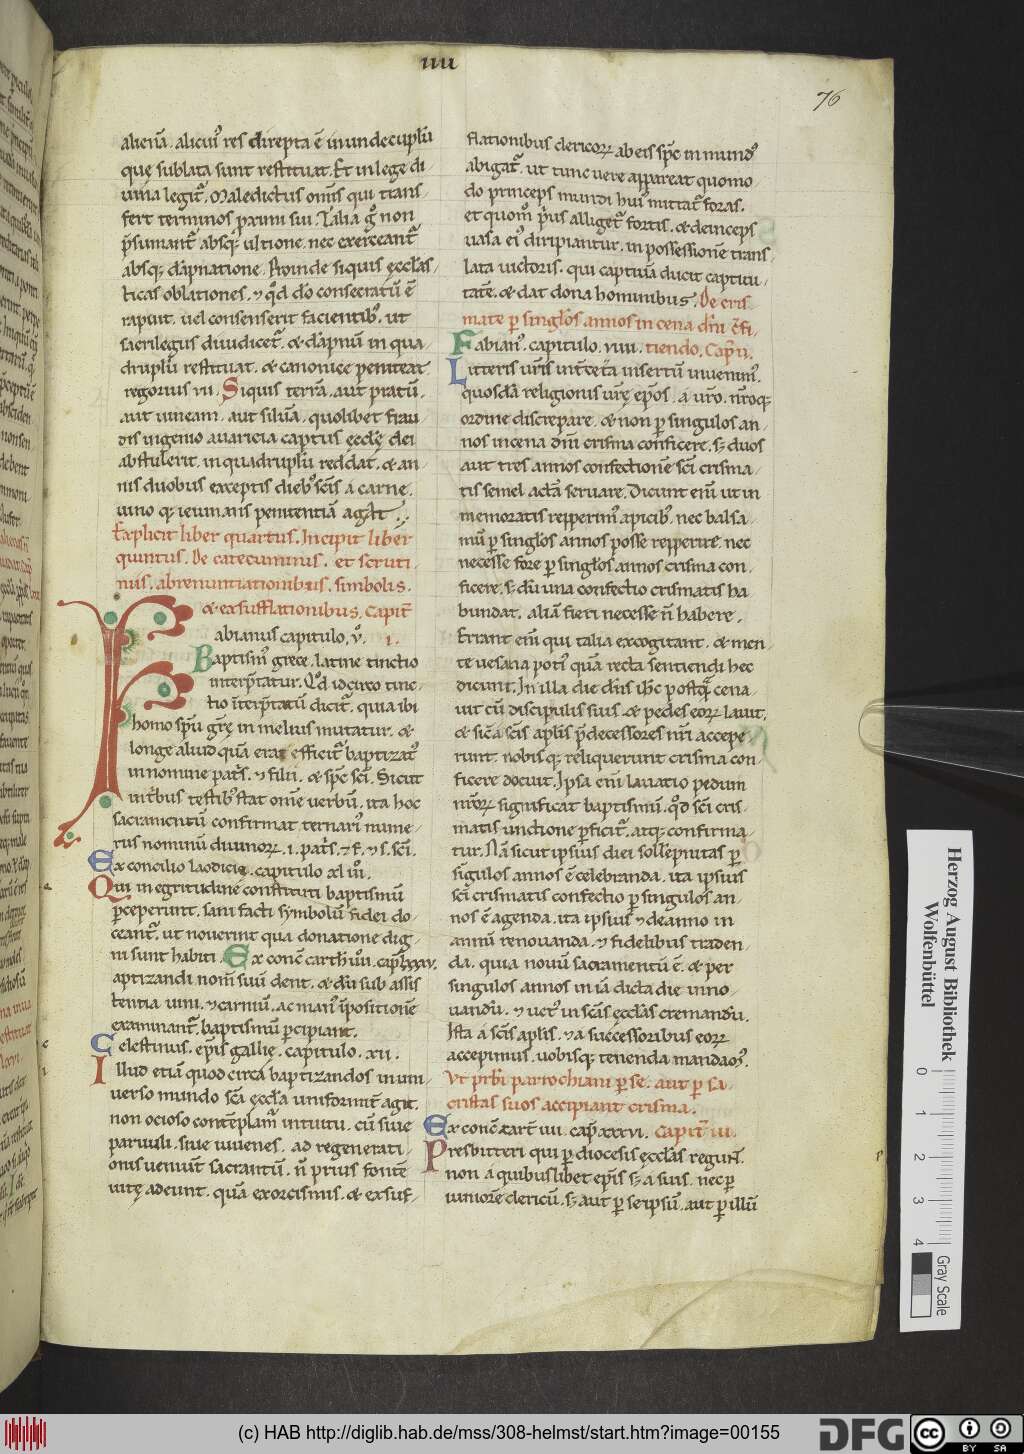 iiii
76
alienā. alicui᷒ res direpta ē in undecuplū
que sublata sunt restituat. Et in lege di
uina legit᷑. Maledictus om̄is qui trans
fert terminos proximi sui. Talia gͦ non
p̄sumant᷑ absq; ultione. nec exerceant᷑
absq; dāpnatione. Proinde siquis ęccl̄as
ticas oblationes. ⁊ qͦd dō consecratū ē
rapuit. uel consenserit facientib᷒. ut
sacrilegus diiudicet᷑. & dāpnū in qua
druplū restituat. & canonice peniteat
regorius iii. Siquis terrā. aut pratū.
aut uineam. aut siluā. quolibet frau
dis ingenio auaricia captus ęcclę dei
abstulerit. in quadruplū reddat. & an
nis duobus exceptis dieb᷒ sc̄is a carne.
uino q; ieiunans penitentiā agat.
Explicit liber quartus. Incipit liber
quintus. De catecuminis. et scruti
niis. abrenuntiationibus. simbolis.
& exsufflationibus. Capit̄
abianus capitulo. v. i.
Baptism᷒ grece. latine tinctio
interp̄tatur. Qͦd idcirco tinc
tio īterp̄tatū dicit᷑. quia ibi
homo sp̄u gr̄ę in melius mutatur. &
longe aliud quā erat efficit᷑ baptizat᷒
in nomine pat̄s. ⁊ filii. & sp̄c sc̄i. Sicut
in t̄bus testib᷒ stat om̄e uerbū. ita hoc
sacramentū confirmat ternari᷒ nume
rus nominū diuinoꝝ. i. pat̄s. & f. & s. sc̄i.
Ex concilio laodicię. capitulo xl iii.
Qui in egritudine constituti baptismū
perceperunt. sani facti symbolū fidei do
ceant᷑. ut nouerint qua donatione dig
ni sunt habiti. Ex conc̄ carth. iiii. cap̄. lxxxv.
aptizandi nom̄ suū dent. & diu sub abstis
tentia uini. ⁊ carniū. ac man᷒ īpositionē
examinant᷑. baptismū percipiant.
Celestinus. ep̄is gallię. capitulo. xii.
Illud etiā quod circa baptizandos in uni
uerso mundo sc̄a ęccl̄a uniformit̄ agit.
non ocioso contēplam᷑ intuitu. cū siue
paruuli. siue iuuenes. ad regenerati
onis ueniunt̄ sacramtū. n̄ prius fontē
uitę adeunt. quā exorcismis. & exsuf
flationibus clericoꝝ ab eis sp̄c inmund᷒
abigat᷑. ut tunc uere appareat quomo
do princeps mundi hui᷒ mittat᷑ foras.
et quom̄ p̄us alliget᷑ fortis. & deinceps
uasa ei᷒ diripiantur. in possessionē trans
lata uictoris. qui captiuā ducit captiui
tatē. & dat dona hominibus. De cris
mate per singlos annos in cena dn̄i c̄fi
Fabian᷒. capitulo. viiii. tiendo. Cap̄ ii.
Litteris uris int̄ cetā insertū inuenim᷒.
quosdā religionis ur̄ę ep̄os. a ur̄o. nr̄oq;
ordine discrepare. & non per singulos an
nos in cena dn̄i crisma conficere. s; duos
aut tres annos confectionē sc̄i crisma
tis semel actā seruare. Dicunt eni ut in
memoratis repperim᷒ apicib᷒. nec balsa
mū per singlos annos posse repperire. nec
necesse fore per singlos annos crisma con
ficere. s; dū una confectio crismatis ha
bundat. aliā fieri necesse n̄ habere.
Errant eni qui talia excogitant. & men
te uesana poti᷒ quā recta sentiendi hec
dicunt. In illa die dn̄s ih̄c postq̄ cena
uit cū discipulis suis. & pedes eoꝝ lauit.
& sic̄ a sc̄is aplis p̄decessores nr̄i accepe
runt. nobis q; reliquerunt crisma con
ficere docuit. Ipsa eni lauatio pedum
nr̄oꝝ significat baptismū. qͦd sc̄i cris
matis unctione perficit᷑. atq; confirma
tur. Nā sicut ipsius diei sollēpnitas per
singulos annos ē celebranda. ita ipsius
sc̄i crismatis confectio per singulos an
nos ē agenda. ita ipsius ⁊ de anno in
annū renouanda. ⁊ fidelibus traden
da. quia nouū sacramentū ē. & per
singulos annos in iā dicta die inno
uandū. ⁊ uet᷒ in sc̄is ęccl̄as cremandū.
Ista a sc̄is aplis. ⁊ a successoribus eoꝝ
accepimus. uobisq; tenenda mandam᷒.
Vt prb̄i parrochiani per se. aut per sa
cristas suos accipiant crisma.
Ex conc̄ cart̄ iiii. cap̄ xxxvi. Capit̄ iii.
Presbiteri qui per diocesis ęcclas regunt.
non a quibuslibet ep̄is s; a suis. nec per
iuniorē clericū. s; aut per se ipsū. aut per illū
Herzog August Bibliothek
Wolfenbüttel
0
1
2
3
4
Gray Scale
(c) HAB http://diglib.hab.de/mss/308-helmst/start.htm?image=00155
DFG
cc
BY SA